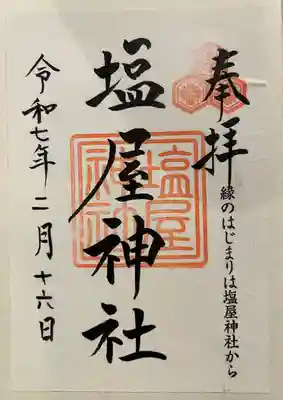 奉拝
縁のはじまりは塩屋神社から
塩屋神社
塩屋神社
令和七年二月十六日